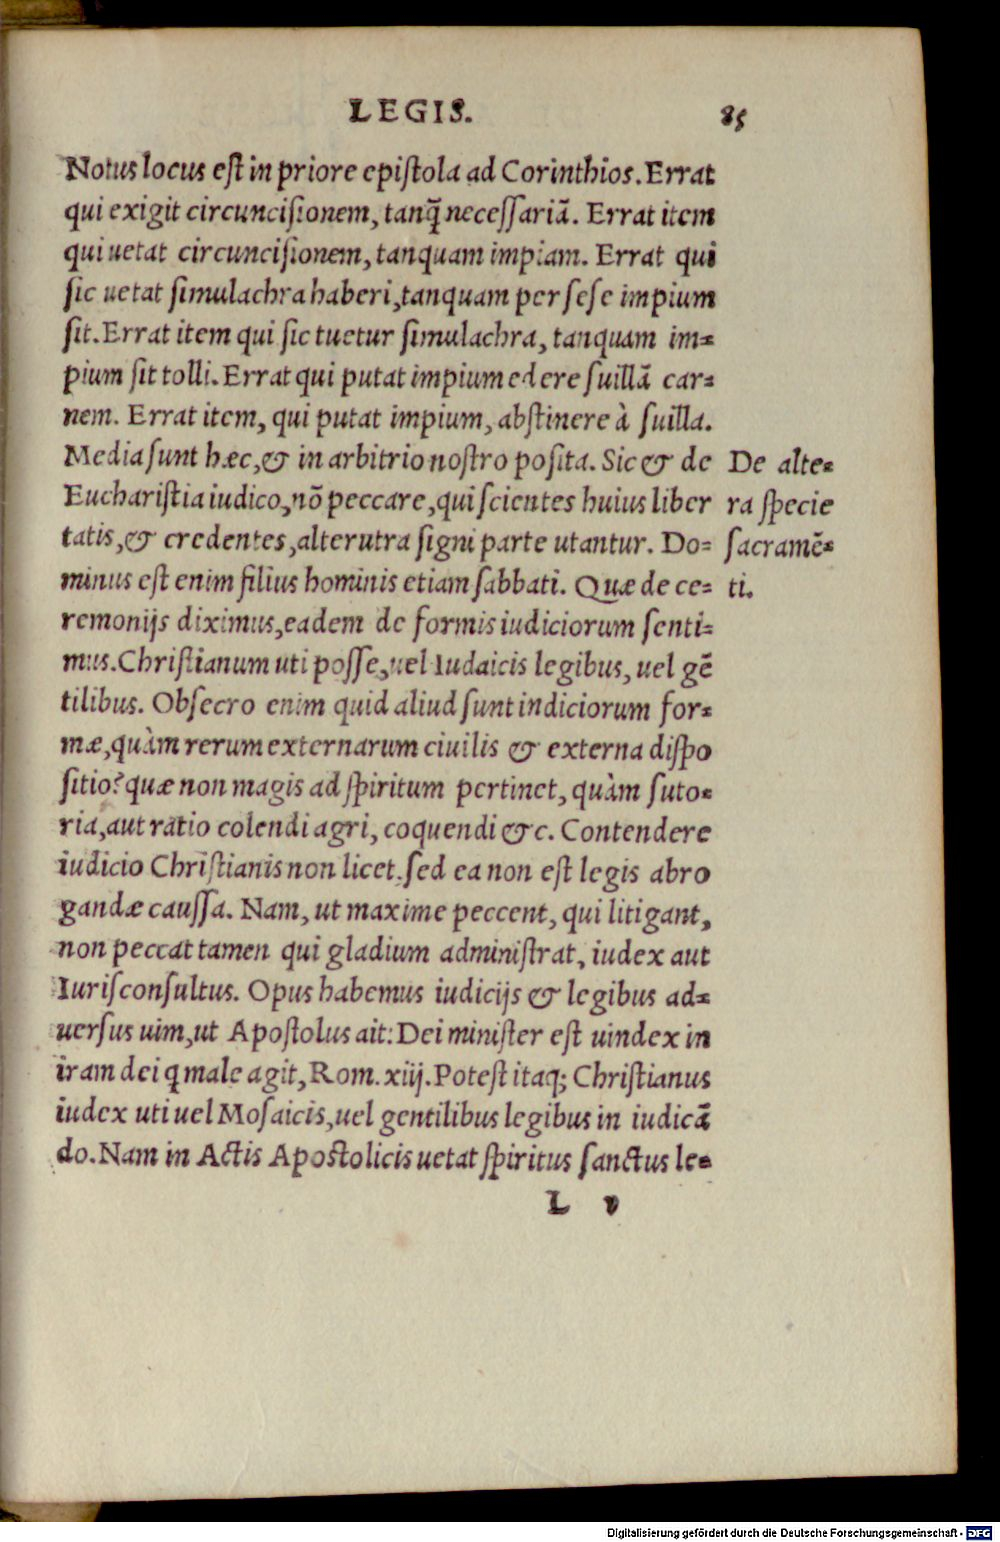 LEGIS. 85
Notus locus est in priore epistola ad Corinthios. Errat
qui exigit circuncisionem, tanq̃ necessariā. Errat item
qui uetat circuncisionem, tanquam impiam. Errat qui
sic uetat simulachra haberi, tanquam per sese impium
sit. Errat item qui sic tuetur simulachra, tanquam im-
pium sit tolli. Errat qui putat impium edere suillā car-
nem. Errat item, qui putat impium, abstinere à suilla.
Media sunt hæc, & in arbitrio nostro posita. Sic & de
Eucharistia iudico, nõ peccare, qui scientes huius liber
tatis, & credentes, alterutra signi parte utantur. Do-
minus est enim filius hominis etiam sabbati. Quæ de ce-
remonijs diximus, eadem de formis iudiciorum senti-
mus. Christianum uti posse, uel Iudaicis legibus, uel gē
tilibus. Obsecro enim quid aliud sunt indiciorum for-
mæ, quàm rerum externarum ciuilis & externa dispo
sitio? quæ non magis ad spiritum pertinet, quàm suto-
ria, aut ratio colendi agri, coquendi &c. Contendere
iudicio Christianis non licet. sed ea non est legis abro
gandæ caussa. Nam, ut maxime peccent, qui litigant,
non peccat tamen qui gladium administrat, iudex aut
Iurisconsultus. Opus habemus iudicijs & legibus ad-
uersus uim, ut Apostolus ait: Dei minister est uindex in
iram dei q male agit, Rom. xiij. Potest itaq; Christianus
iudex uti uel Mosaicis, uel gentilibus legibus in iudicā
do. Nam in Actis Apostolicis uetat spiritus sanctus le-
De alte-
ra specie
sacramē-
ti.
L v
Digitalisierung gefördert durch die Deutsche Forschungsgemeinschaft - DFG